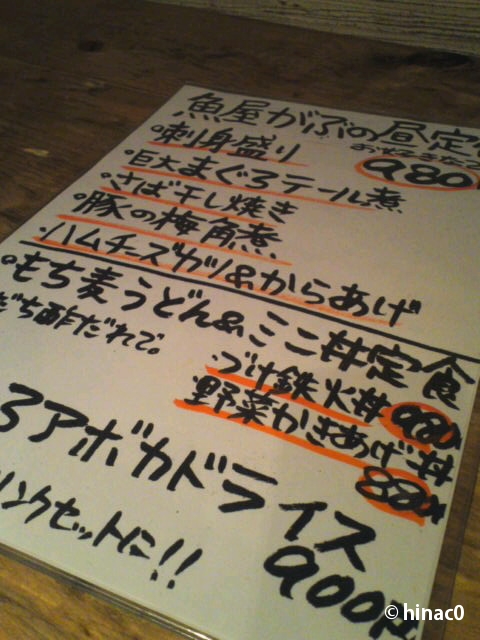 魚屋がぶの昼定
おなまえ
980
・刺身盛り
・巨大まぐろテール煮
・さば干し焼き
・豚の梅角煮
・ハムチーズカツ&からあげ
・もち麦うどん&ミニ丼定食
だち酢だれで。
・づけ鉄火丼 980
・野菜かきあげ丼 880
ろアボカドライス
900円
リンクセットに!!
© hinac0